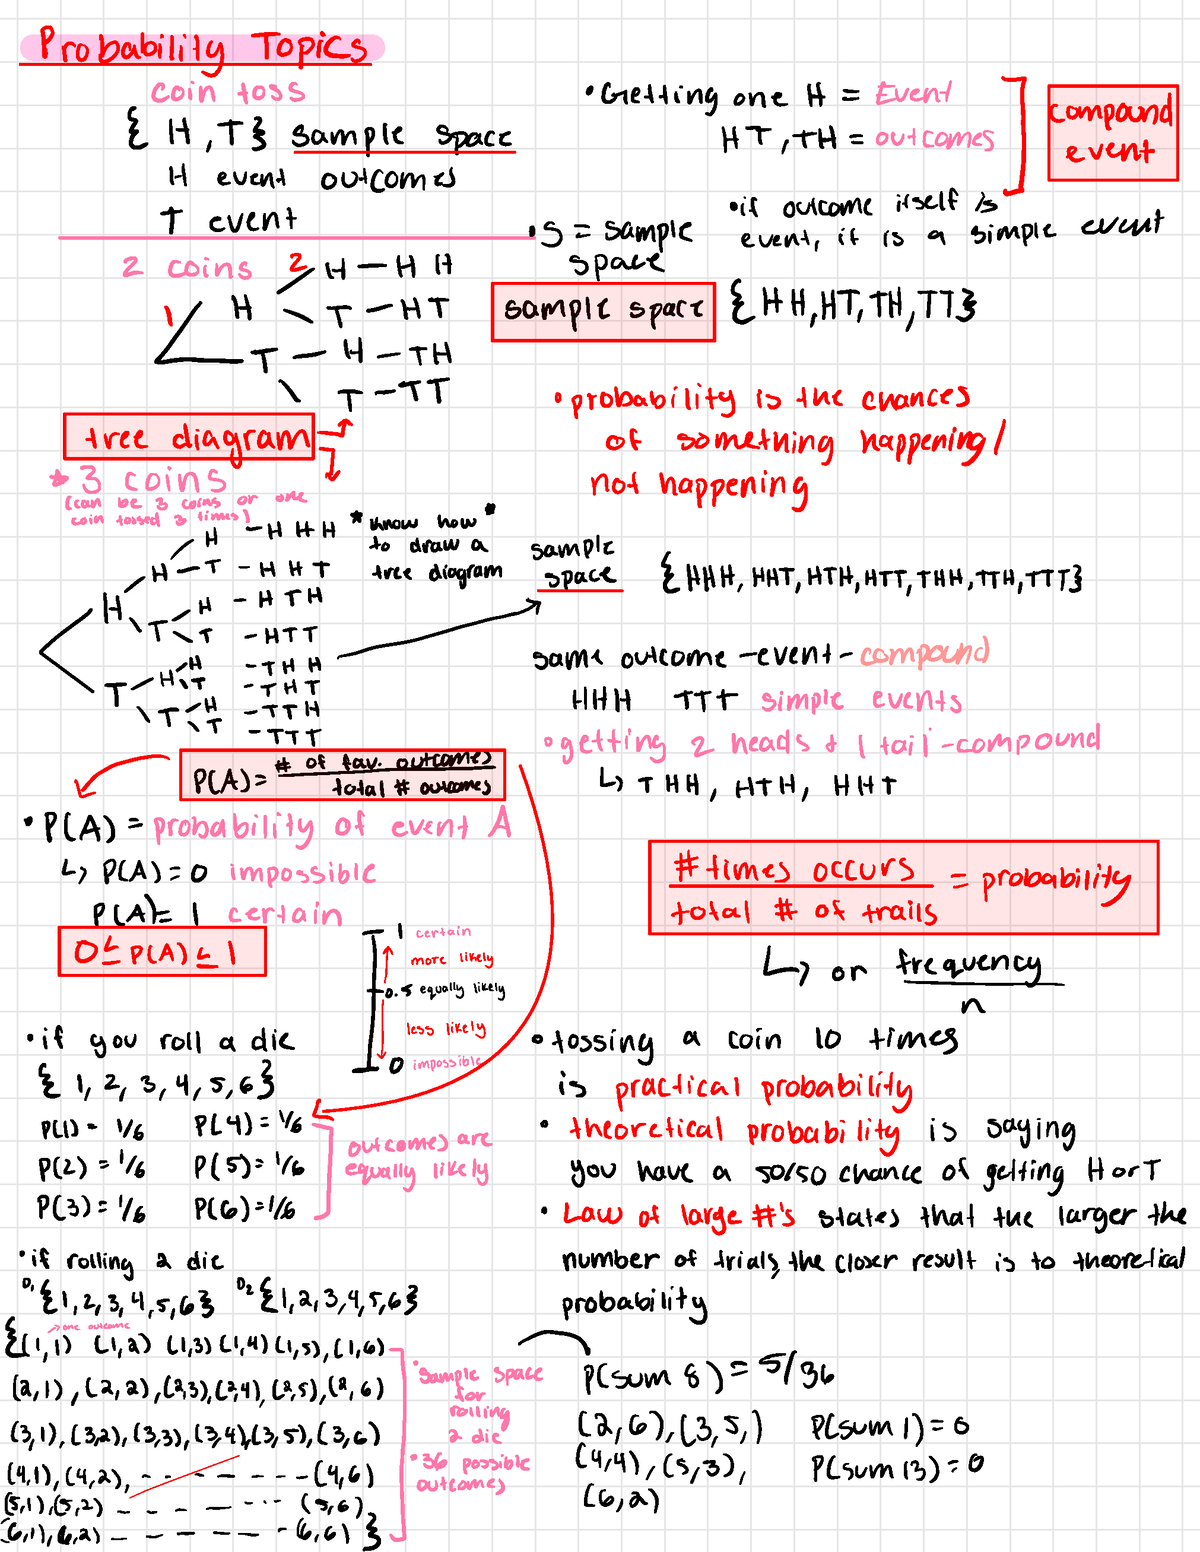 Probability Topics
coin toss
{ H , T } sample space
H event outcomes
T event
• Getting one H = Event
HT , TH = outcomes
compound
event
• if outcome itself is
event, it is a simple event
• S = sample
space
sample space { HH, HT, TH, TT }
2 coins
2
1
H — H H
H
T — HT
T — H — TH
T — TT
tree diagram
• probability is the chances
of something happening /
not happening
* 3 coins
(can be 3 coins or one
coin tossed 3 times)
* know how *
to draw a
tree diagram
H — H H H
H — T — H H T
H
H — H T H
T
T — HTT
H — T H H
H
T — T H T
T
H — TTH
T
T — TTT
sample
space
{ HHH, HHT, HTH, HTT, THH, TTH, TTT }
same outcome – event – compound
HHH TTT simple events
• getting 2 heads & 1 tail – compound
↳ THH, HTH, HHT
P(A) = # of fav. outcomes
total # outcomes
• P(A) = probability of event A
↳ P(A) = 0 impossible
P(A) = 1 certain
0 ≤ P(A) ≤ 1
1 certain
more likely
0.5 equally likely
less likely
0 impossible
# times occurs = probability
total # of trails
↳ or frequency
n
• if you roll a die
{ 1, 2, 3, 4, 5, 6 }
P(1) = 1/6 P(4) = 1/6
P(2) = 1/6 P(5) = 1/6
P(3) = 1/6 P(6) = 1/6
outcomes are
equally likely
• tossing a coin 10 times
is practical probability
• theoretical probability is saying
you have a 50/50 chance of getting H or T
• Law of large #'s states that the larger the
number of trials, the closer result is to theoretical
probability
• if rolling 2 die
D1 {1, 2, 3, 4, 5, 6} D2 {1, 2, 3, 4, 5, 6}
→ one outcome
{(1, 1) (1, 2) (1,3) (1,4) (1,5), (1,6)
(2,1), (2,2), (2,3), (2,4), (2,5), (2,6)
(3,1), (3,2), (3,3), (3,4), (3,5), (3,6)
(4,1), (4,2), - - - - - - - (4,6)
(5,1), (5,2) - - - - - - - (5,6)
(6,1), (6,2) - - - - - - - (6,6) }
• sample space
for
rolling
2 die
• 36 possible
outcomes
P(sum 8) = 5/36
(2,6), (3,5,)
(4,4), (5,3),
(6,2)
P(sum 1) = 0
P(sum 13) = 0